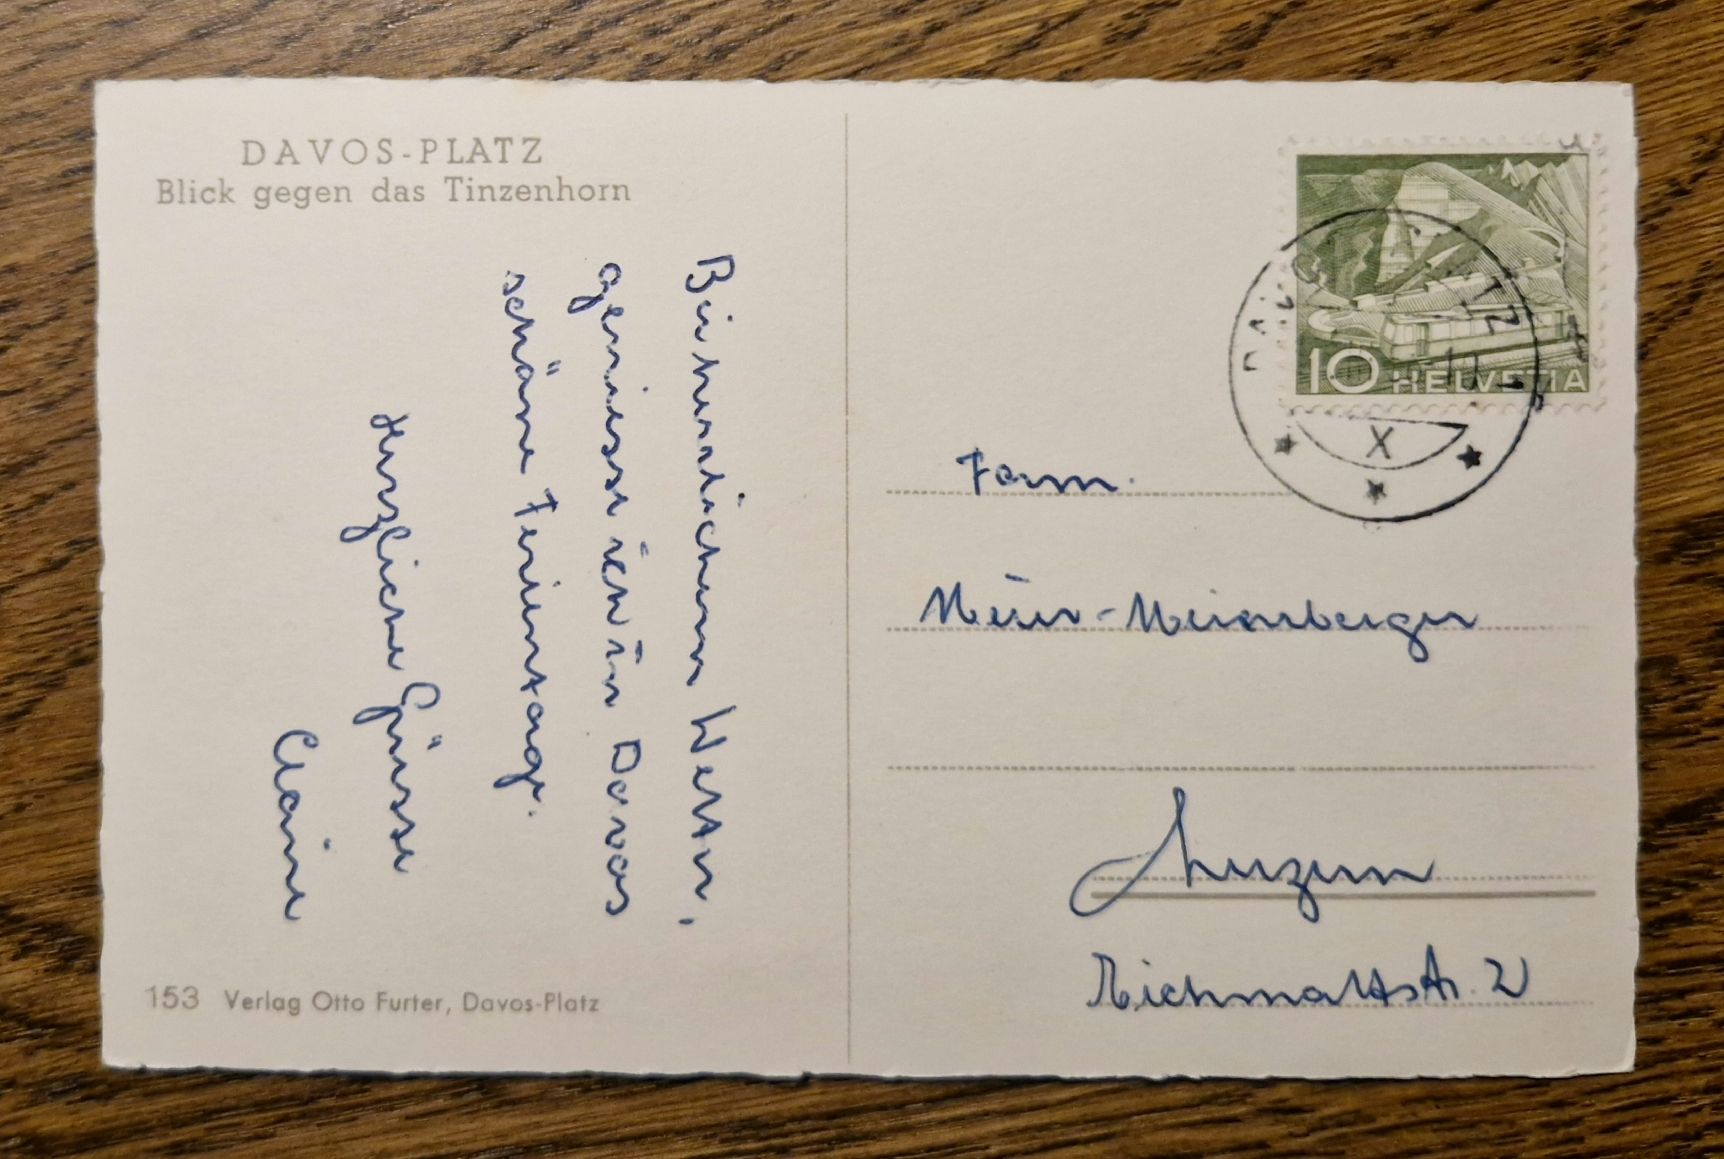 DAVOS-PLATZ
Blick gegen das Tinzenhorn
Bei herrlichem Wetter,
geniesse ich in Davos
schöne Ferientage.
Herzliche Grüsse
Claire
153 Verlag Otto Furter, Davos-Platz
10 HELVETIA
DAVOS PLATZ
X
Fam.
Meier-Meienberger
Luzern
Eichmattstr. 2